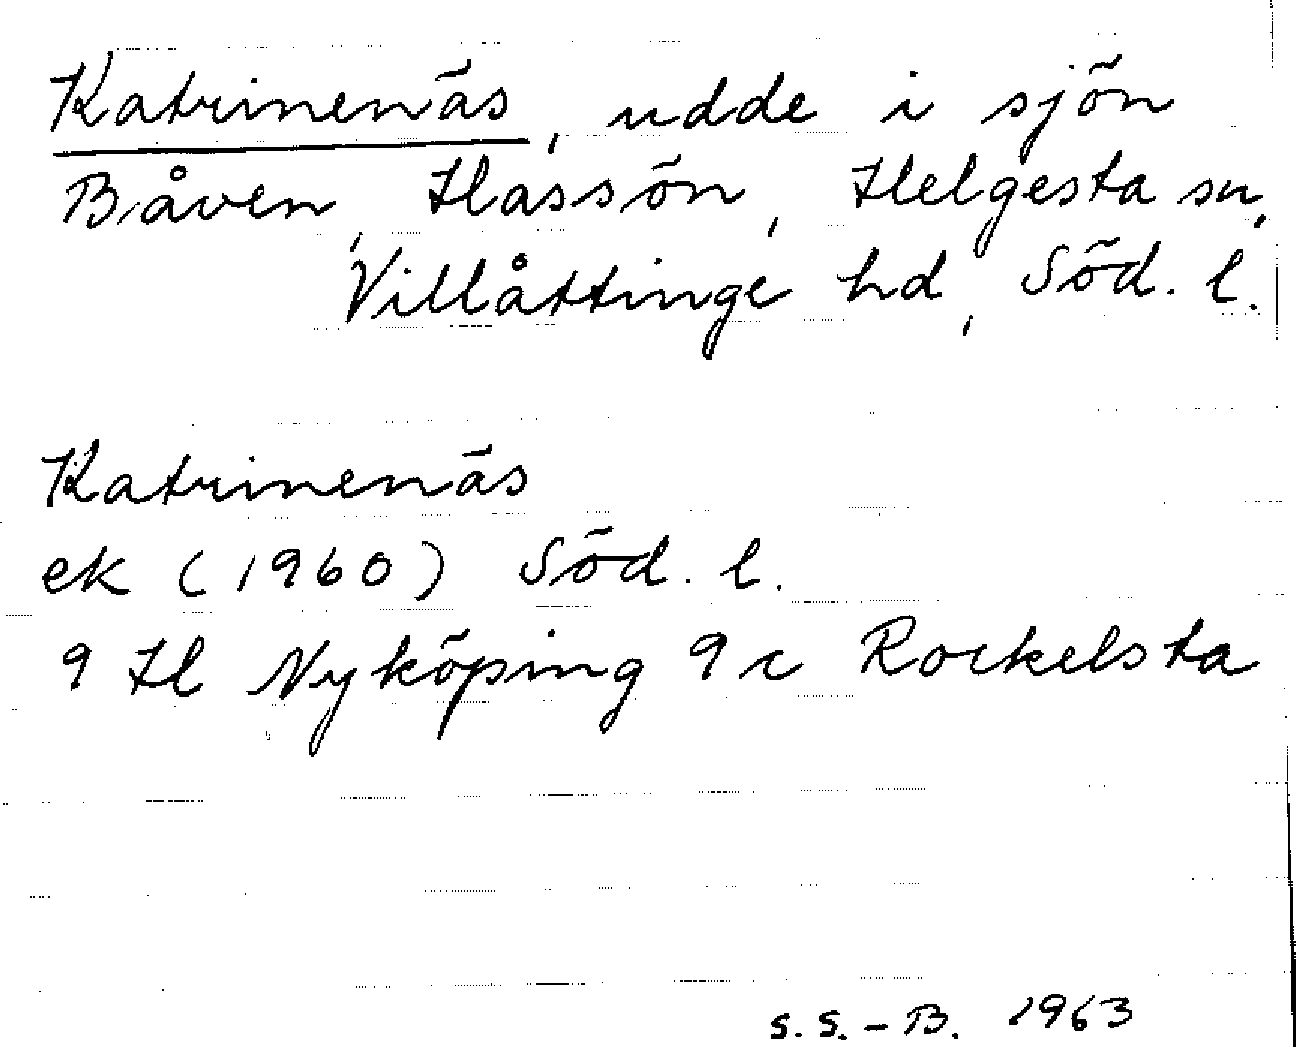 Katrinenäs, udde i sjön
Båven, Hassön, Helgesta sn,
Villåttinge hd, Söd. l.
Katrinenäs
ek (1960) Söd. l.
9 H Nyköping 9 c Rockelsta
S. S. - B. 1963